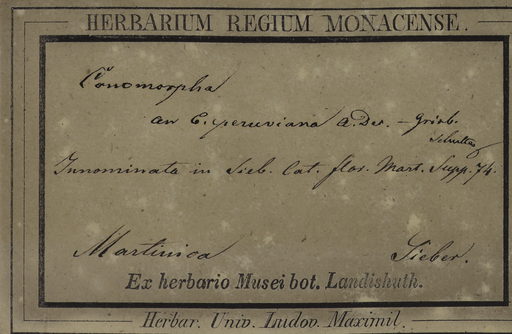 HERBARIUM REGIUM MONACENSE.
Conomorpha
an C. peruviana A. DC. – Griseb.
Innominata in Sieb. Cat. flor. Mart. Supp. 74.
Martinica Sieber.
Ex herbario Musei bot. Landishuth.
Herbar. Univ. Ludov. Maximil.